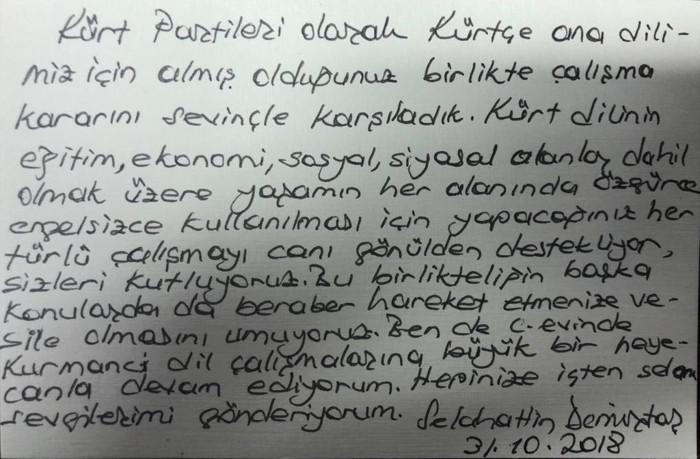 Kürt Partileri olarak Kürtçe ana dili-
miz için almış olduğunuz birlikte çalışma
kararını sevinçle karşıladık. Kürt dilinin
eğitim, ekonomi, sosyal, siyasal alanlar dahil
olmak üzere yaşamın her alanında özgürce
engelsizce kullanılması için yapacağınız her
türlü çalışmayı canı gönülden destekliyor,
sizleri kutluyoruz. Bu birlikteliğin başka
konularda da beraber hareket etmenize ve-
sile olmasını umuyoruz. Ben de c.evinde
Kurmanci dil çalışmalarına büyük bir heye-
canla devam ediyorum. Hepinize içten selam
sevgilerimi gönderiyorum. Selahattin Demirtaş
31.10.2018